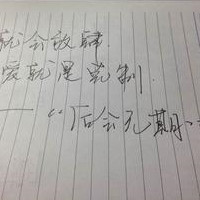 就会放肆
爱就是克制
——“后会无期”